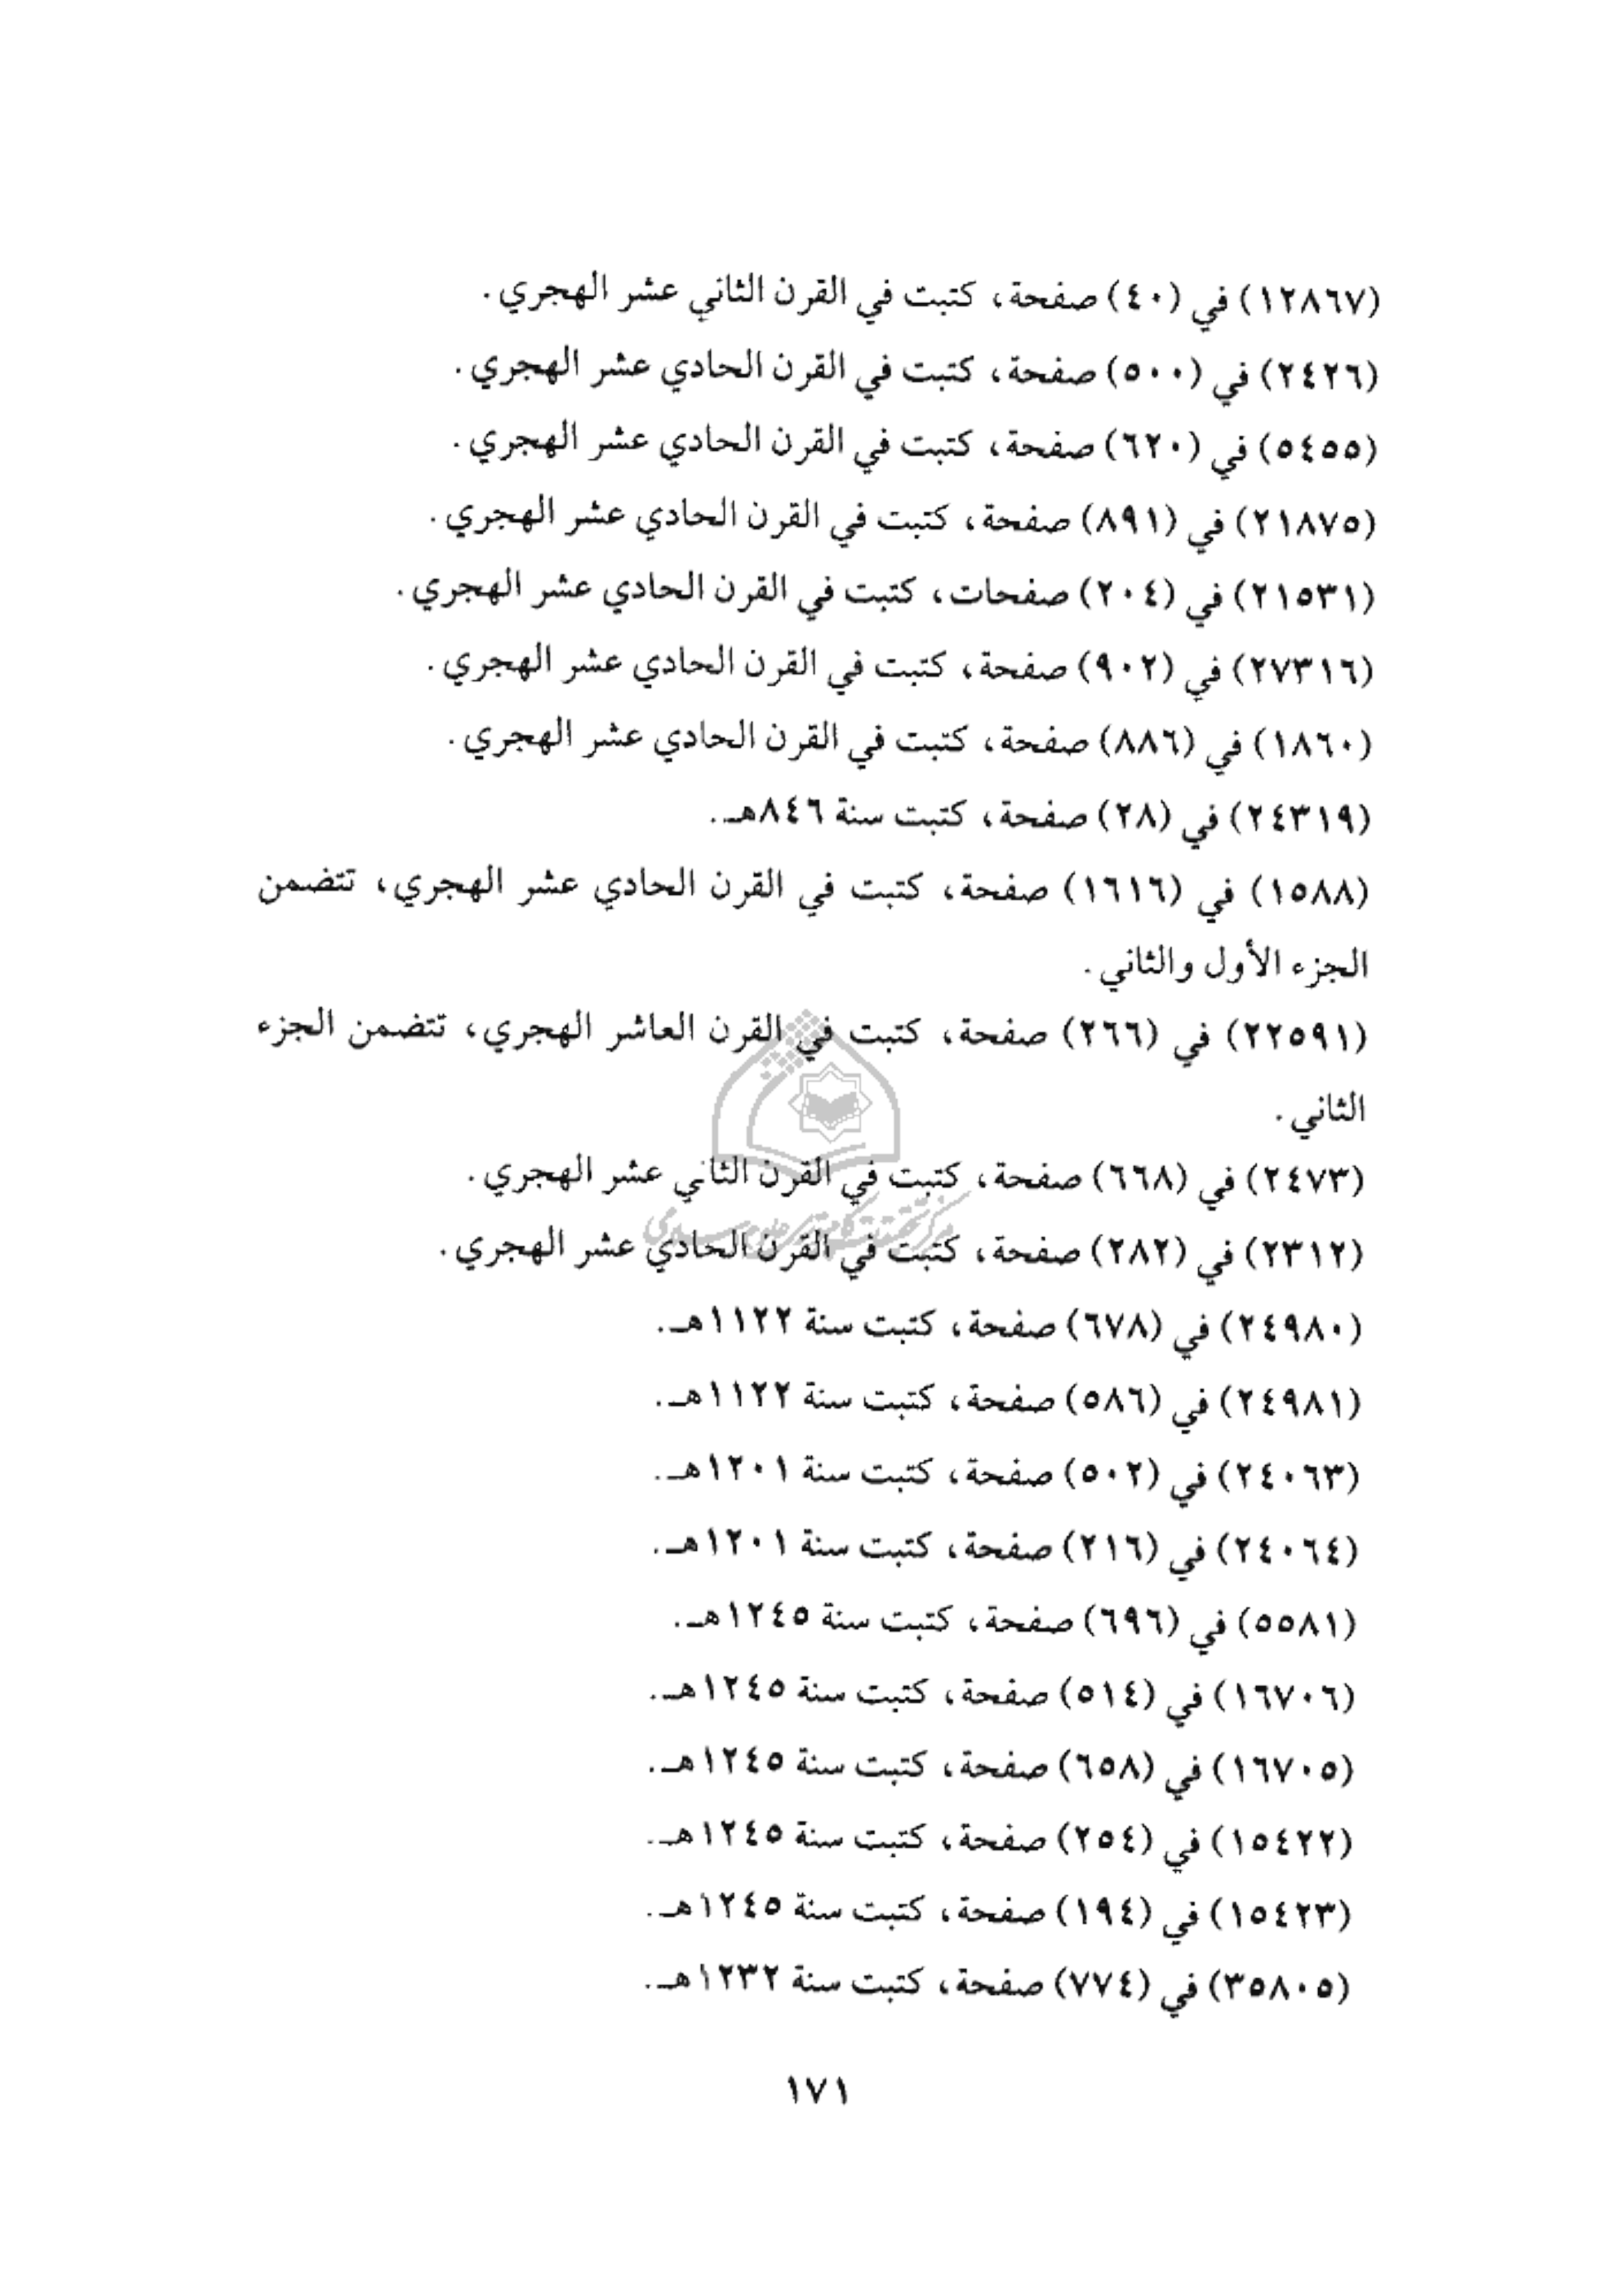 (١٢٨٦٧) في (٤٠) صفحة، كتبت في القرن الثاني عشر الهجري.
(٢٤٢٦) في (٥٠٠) صفحة، كتبت في القرن الحادي عشر الهجري.
(٥٤٥٥) في (٦٢٠) صفحة، كتبت في القرن الحادي عشر الهجري.
(٢١٨٧٥) في (٨٩١) صفحة، كتبت في القرن الحادي عشر الهجري.
(٢١٥٣١) في (٢٠٤) صفحات، كتبت في القرن الحادي عشر الهجري.
(٢٧٣١٦) في (٩٠٢) صفحة، كتبت في القرن الحادي عشر الهجري.
(١٨٦٠) في (٨٨٦) صفحة، كتبت في القرن الحادي عشر الهجري.
(٢٤٣١٩) في (٢٨) صفحة، كتبت سنة ٨٤٦هـ.
(١٥٨٨) في (١٦١٦) صفحة، كتبت في القرن الحادي عشر الهجري، تتضمن
الجزء الأول والثاني.
(٢٢٥٩١) في (٢٦٦) صفحة، كتبت في القرن العاشر الهجري، تتضمن الجزء
الثاني.
(٢٤٧٣) في (٦٦٨) صفحة، كتبت في القرن الثاني عشر الهجري.
(٢٣١٢) في (٢٨٢) صفحة، كتبت في القرن الحادي عشر الهجري.
(٢٤٩٨٠) في (٦٧٨) صفحة، كتبت سنة ١١٢٢هـ.
(٢٤٩٨١) في (٥٨٦) صفحة، كتبت سنة ١١٢٢هـ.
(٢٤٠٦٣) في (٥٠٢) صفحة، كتبت سنة ١٢٠١هـ.
(٢٤٠٦٤) في (٢١٦) صفحة، كتبت سنة ١٢٠١هـ.
(٥٥٨١) في (٦٩٦) صفحة، كتبت سنة ١٢٤٥هـ.
(١٦٧٠٦) في (٥١٤) صفحة، كتبت سنة ١٢٤٥هـ.
(١٦٧٠٥) في (٦٥٨) صفحة، كتبت سنة ١٢٤٥هـ.
(١٥٤٢٢) في (٢٥٤) صفحة، كتبت سنة ١٢٤٥هـ.
(١٥٤٢٣) في (١٩٤) صفحة، كتبت سنة ١٢٤٥هـ.
(٣٥٨٠٥) في (٧٧٤) صفحة، كتبت سنة ١٢٣٢هـ.
١٧١